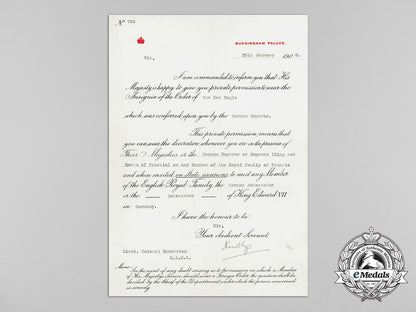 No 706
BUCKINGHAM PALACE.
25th January 1908.
Sir,
I am commanded to inform you that His
Majesty is happy to give you private permission to wear the
Insignia of the Order of the Red Eagle
which was conferred upon you by the German Emperor.
This private permission means that
you can wear the decoration whenever you are in the presence of
Their Majesties, or the German Emperor or Empress (King and
Queen of Prussia) or any Member of the Royal Family of Prussia
and when invited on State occasions to meet any Member
of the English Royal Family, the German Ambassador
or the Ambassador of King Edward VII
in Germany.
I have the honour to be
Sir,
Your obedient Servant,
Lieut. Colonel Henderson
Memo: In the event of any doubt arising as to the occasion on which a Member
of His Majesty's Service should wear a Foreign Order the question shall be
decided by the Chief of the Department under which the person concerned
is serving.
eMedals